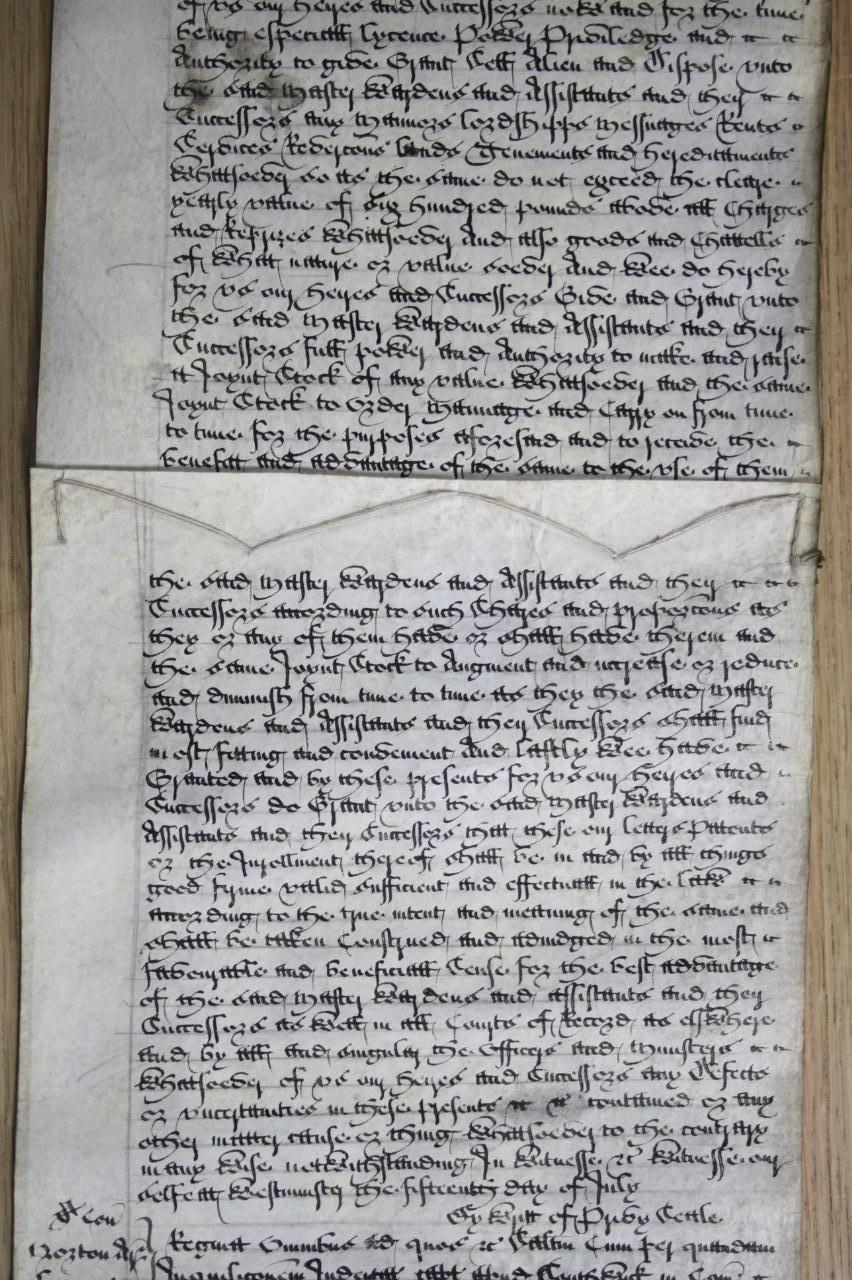 of vs our heyres and Successors now and for the time
being especiall lycence Power Priviledge and
Authority to give Grant Sell Alien and Dispose vnto
the said Master Wardens and Assistants and their
Successors any Mannors lordshipps Messuages Rents
Services Revercons lands Tenements and hereditaments
whatsoever so as the same do not exceed the cleare
yearly value of six hundred pounds above all Charges
and Reprizes whatsoever And also goods and Chattells
of what nature or value soever And wee do hereby
for vs our heyres and Successors Give and Grant vnto
the said Master Wardens and Assistants and their
Successors full power and Authority to make and raise
a Joynt Stock of any value whatsoever and the same
Joynt Stock to Order Mannage and Carry on from time
to time for the purposes aforesaid and to receive the
benefitt and advantage of the same to the vse of them
the said Master Wardens and Assistants and their
Successors according to such Shares and proporcons as
they or any of them have or shall have therein and
the same Joynt Stock to Augment and increase or reduce
and diminish from time to time as they the said Master
Wardens and Assistants and their Successors shall find
most fitting and convenient And lastly wee have
Granted and by these presents for vs our heyres and
Successors do Grant vnto the said Master Wardens and
Assistants and their Successors that these our letters Patents
or the Inrollment thereof shall be in and by all things
good firme valid sufficient and effectuall in the law
according to the true intent and meaning of the same and
shall be taken Construed and adiudged in the most
favourable and beneficiall Sense for the best advantage
of the said Master Wardens and Assistants and their
Successors as well in all Courts of Record as elswhere
and by all and singular the Officers and Ministers
whatsoever of vs our heyres and Successors any Defects
or vncertainties in these presents contained or any
other matter cause or thing whatsoever to the contrary
in any wise notwithstanding In witnesse &c witnesse our
selfe att Westminster the fifteenth day of July
By writt of Privy Seale
Regina Omnibus ad quos &c Saltm Cum per quandam